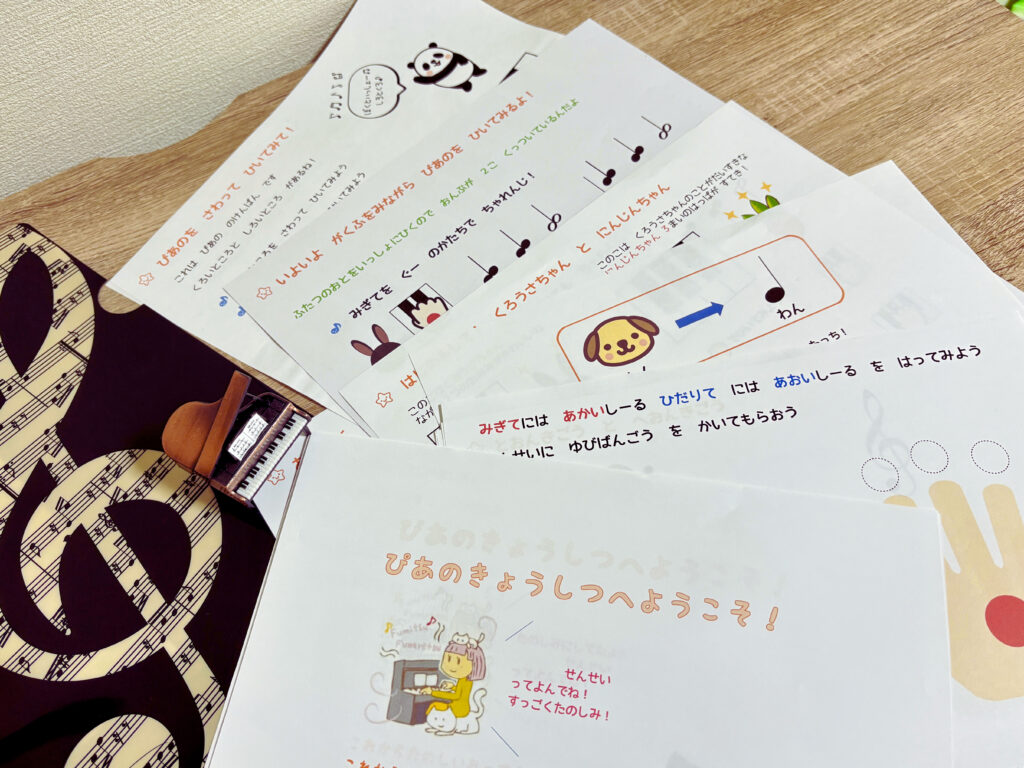 ぴあのを さわって ひいてみて！
これは ぴあの のけんばん です
くろいところと しろいところ があるね！
さわって ひいてみよう
いよいよ がくふをみながら ぴあのを ひいてみるよ！
ふたつのおとをいっしょにひくので おんぷが 2こ くっついているんだよ
みぎてを ぐー のかたちで ちゃれんじ！
くろうさちゃん と にんじんちゃん
このこは くろうさちゃんのことがだいすきな
にんじんちゃん 3まいのはっぱが すてき！
わん
みぎてには あかいしーる ひだりて には あおいしーる を はってみよう
せんせいに ゆびばんごう を かいてもらおう
ぴあのきょうしつへようこそ！
せんせい
ってよんでね！
すっごくたのしみ！